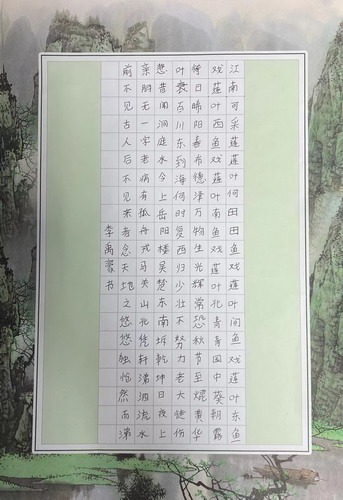 江南可采莲莲叶何田田鱼戏莲叶间鱼戏莲叶东鱼
戏莲叶西鱼戏莲叶南鱼戏莲叶北青青园中葵朝露
待日晞阳春布德泽万物生光辉常恐秋节至焜黄华
叶衰百川东到海何时复西归少壮不努力老大徒伤
悲昔闻洞庭水今上岳阳楼吴楚东南坼乾坤日夜上
亲朋无一字老病有孤舟戎马关山北凭轩涕泗流水
前不见古人后不见来者念天地之悠悠独怆然而涕
李禹书